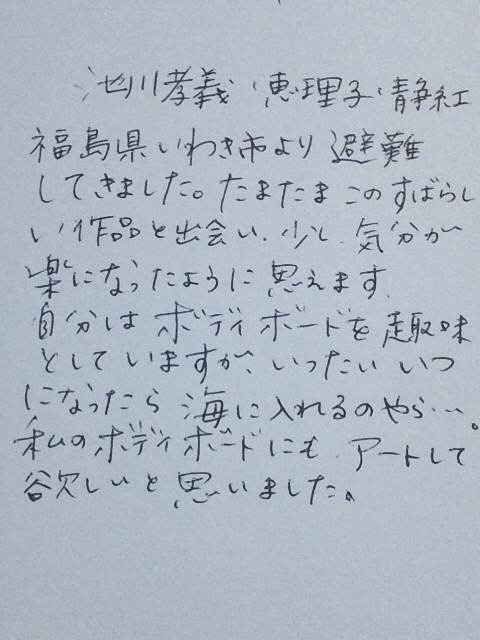 川孝義・恵理子・静紅
福島県いわき市より避難
してきました。たまたまこのすばらし
い作品と出会い、少し気分が
楽になったように思えます
自分はボディボードを趣味
としていますが、いったいいつ
になったら海に入れるのやら…。
私のボディボードにも、アートして
欲しいと思いました。